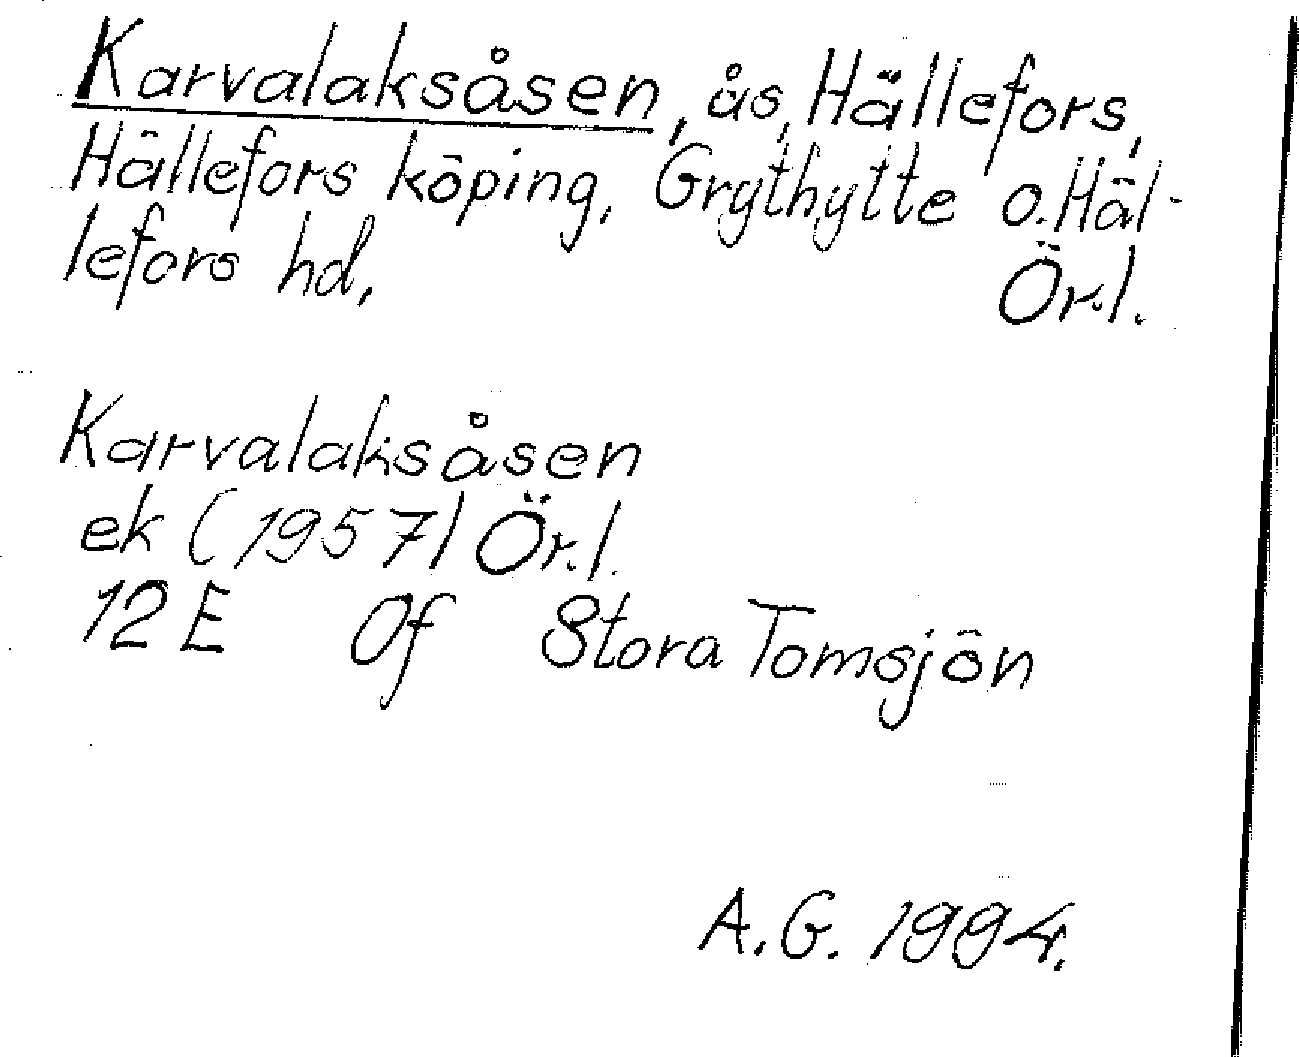 Karvalaksåsen, ås, Hällefors,
Hällefors köping, Grythytte o. Häl-
lefors hd, Ör.l.
Karvalaksåsen
ek (1957) Ör.l.
12E 0f Stora Tomsjön
A.G. 1994.